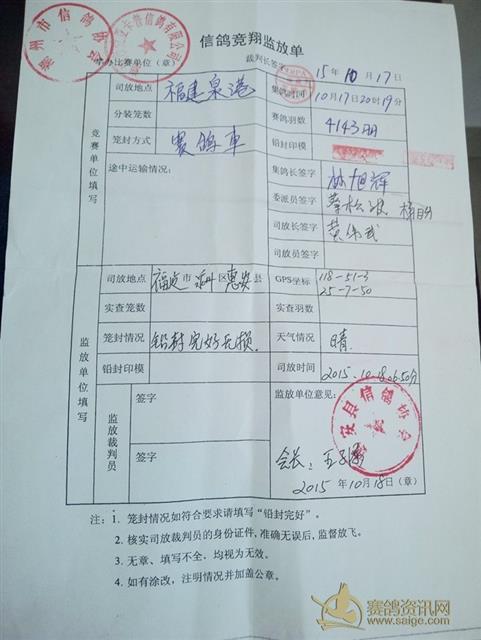 信鸽竞翔监放单
举办比赛单位（章） 裁判长签字
15年10月17日
司放地点 福建泉港 集鸽时间 10月17日20时19分
分装笼数 赛鸽羽数 4143羽
笼封方式 赛鸽车 铅封印模
竞赛单位填写
途中运输情况： 集鸽长签字 林旭辉
委派员签字
司放长签字 黄伟武
司放员签字
司放地点 福建市泉州区惠安县 GPS坐标 118-51-3
25-7-50
实查笼数 实查羽数
笼封情况 铅封完好无损. 天气情况 晴.
铅封印模 司放时间 2015.10.18.06:50分
监放单位填写
监放裁判员 签字 监放单位意见：
签字 会长：
2015年10月18日（章）
安县信鸽协会
注：1. 笼封情况如符合要求请填写“铅封完好”。
2. 核实司放裁判员的身份证件，准确无误后，监督放飞。
3. 无章、填写不全，均视为无效。
4. 如有涂改，注明情况并加盖公章。
赛鸽资讯网
www.saige.com